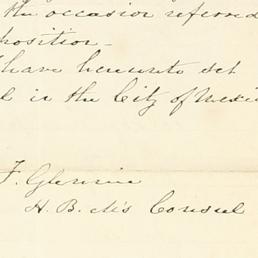 the occasion referred
position -
have hereunto set
l in the City of Mexi
F. Glennie
H. B. M's Consul